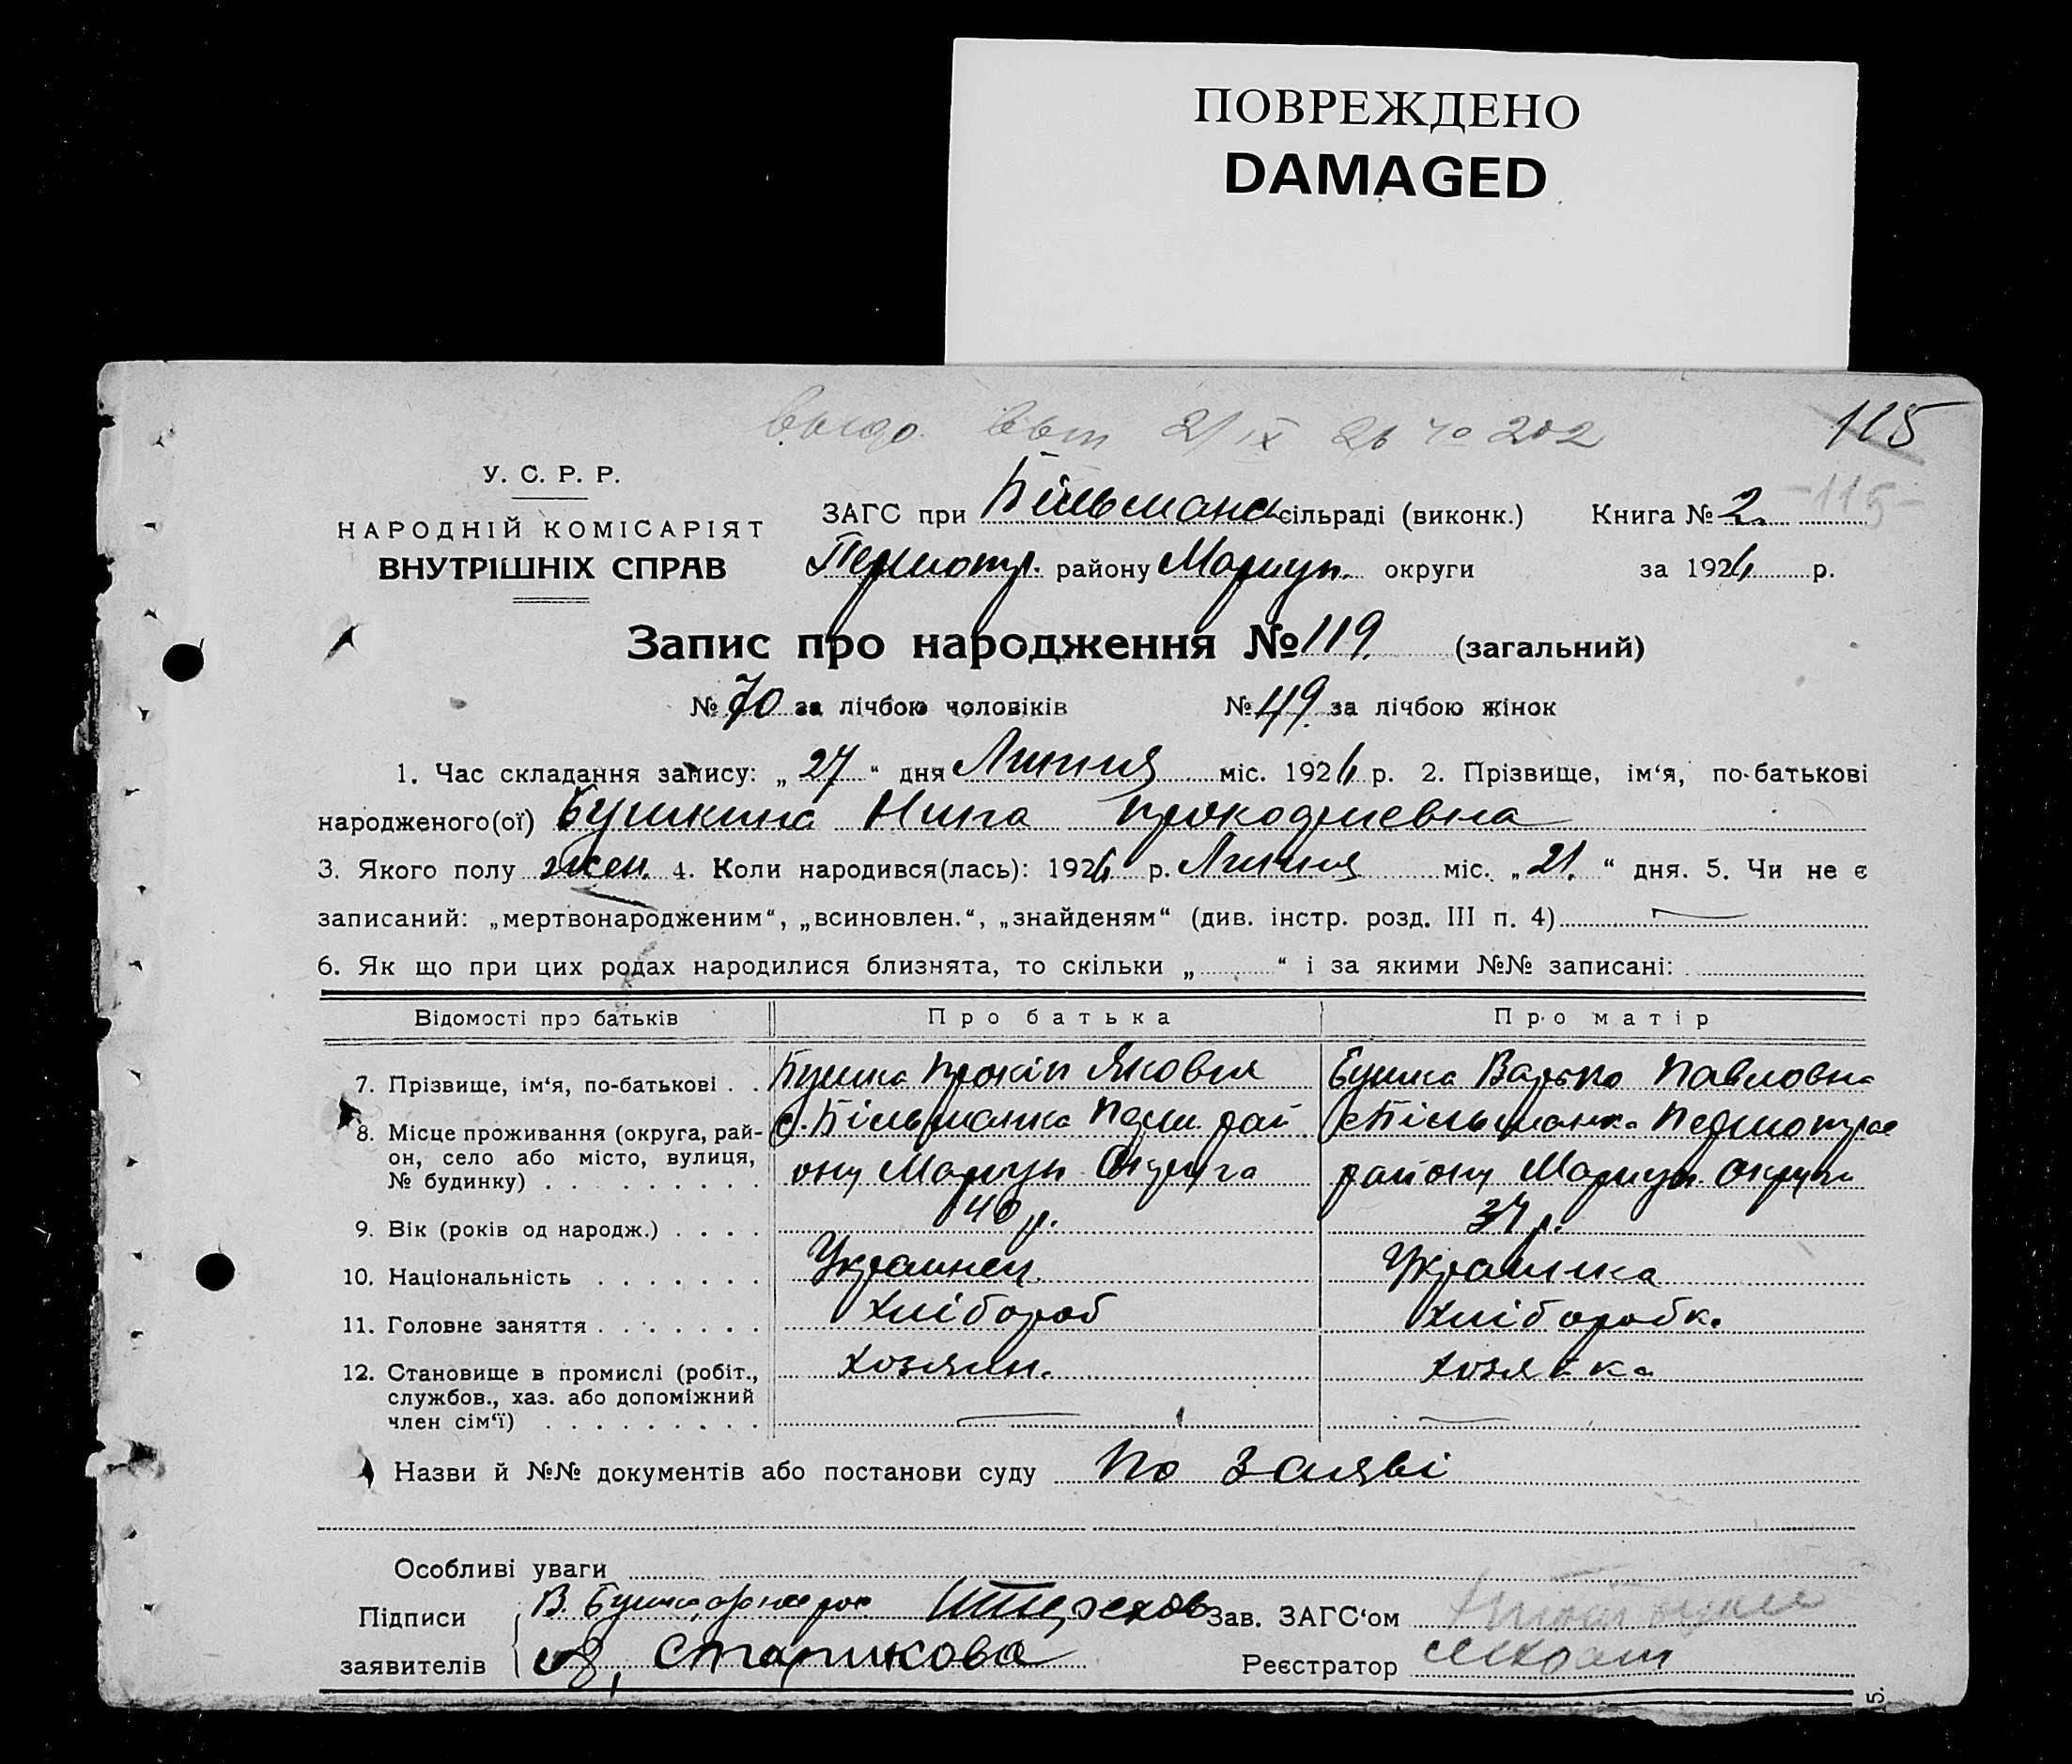 ПОВРЕЖДЕНО
DAMAGED
115
У. С. Р. Р.
НАРОДНІЙ КОМІСАРІЯТ
ВНУТРІШНІХ СПРАВ
ЗАГС при Більманс сільраді (виконк.) Книга № 2. -115-
Пермотр. району Мариуп. округи за 1926 р.
Запис про народження № 119. (загальний)
№ 70 за лічбою чоловіків № 49. за лічбою жінок
1. Час складання запису: „ 27 “ дня Липня міс. 1926 р. 2. Прізвище, ім‘я, по-батькові
народженого(ої) Бушкина Нина Прокофиевна
3. Якого полу жен. 4. Коли народився(лась): 1926 р. Липня міс. „ 21. “ дня. 5. Чи не є
записаний: „мертвонародженим“, „всиновлен.“, „знайденям“ (див. інстр. розд. III п. 4)
6. Як що при цих родах народилися близнята, то скільки „ “ і за якими №№ записані:
Відомості про батьків Про батька Про матір
7. Прізвище, ім‘я, по-батькові . . Бушка Прокіп Яковля Бушка Варько Павловна
8. Місце проживання (округа, рай- с. Більманка Перм. рай с Більманка Пермотрае
он, село або місто, вулиця,
№ будинку) . . . . . . . . . ону Мариуп Округа району Мариуп. округи
9. Вік (років од народж.) . . . . 40 р. 37 р.
10. Національність . . . . . . . Украинец. Украинка
11. Головне заняття . . . . . . . Хлібороб Хліборобк.
12. Становище в промислі (робіт., хозяин. хозяйка
службов., хаз. або допоміжний
член сім‘ї) . . . . . . . . .
Назви й №№ документів або постанови суду По Заяві
Особливі уваги
Підписи В. Бушка Зав. ЗАГС‘ом
заявителів Старикова Реєстратор
5.